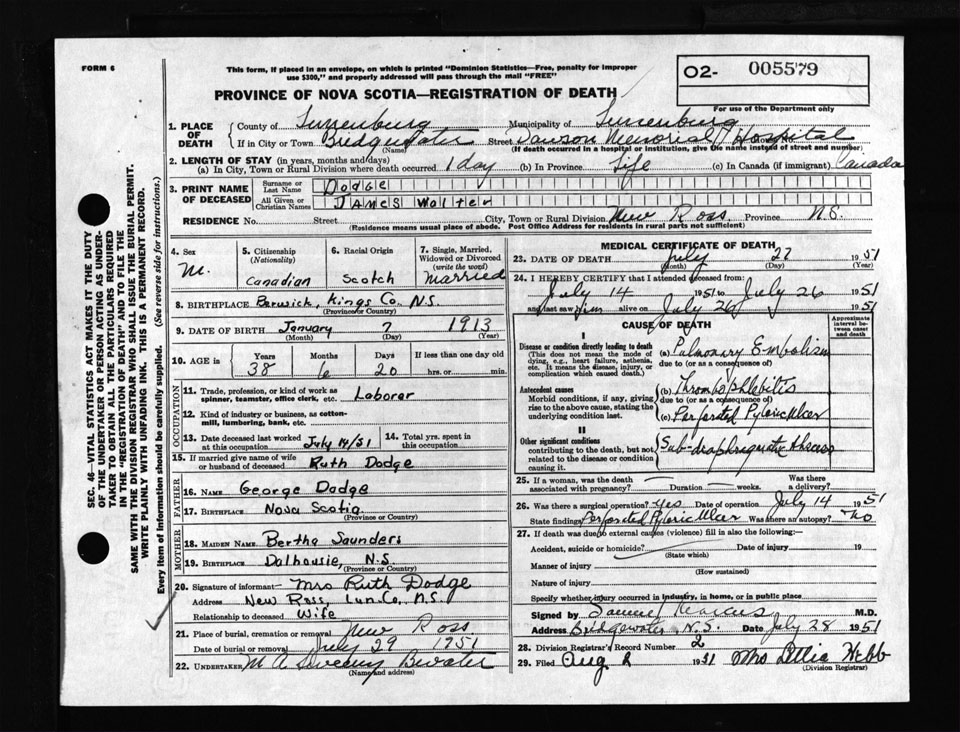 FORM 6
This form, if placed in an envelope, on which is printed "Dominion Statistics—Free, penalty for improper
use $300," and properly addressed will pass through the mail "FREE"
O2- 005579
PROVINCE OF NOVA SCOTIA—REGISTRATION OF DEATH
For use of the Department only
1. PLACE OF DEATH
County of Lunenburg Municipality of Lunenburg
If in City or Town Bridgewater Street Dawson Memorial Hospital
(Name) (If death occurred in a hospital or institution, give the name instead of street and number)
2. LENGTH OF STAY (in years, months and days)
(a) In City, Town or Rural Division where death occurred 1 day (b) In Province Life (c) In Canada (if immigrant) Canada
3. PRINT NAME OF DECEASED
Surname or Last Name Dodge
All Given or Christian Names JAMES Walter
RESIDENCE No. Street City, Town or Rural Division New Ross Province N.S.
(Residence means usual place of abode. Post Office Address for residents in rural parts not sufficient)
4. Sex M.
5. Citizenship (Nationality) Canadian
6. Racial Origin Scotch
7. Single, Married, Widowed or Divorced (write the word) Married
8. BIRTHPLACE Berwick, Kings Co. N.S.
(Province or Country)
9. DATE OF BIRTH January 7 1913
(Month) (Day) (Year)
10. AGE in Years Months Days If less than one day old
38 6 20 hrs. or min.
OCCUPATION
11. Trade, profession, or kind of work as
spinner, teamster, office clerk, etc. Laborer
12. Kind of industry or business, as cotton-
mill, lumbering, bank, etc.
13. Date deceased last worked at this occupation July 14/51
14. Total yrs. spent in this occupation
15. If married give name of wife
or husband of deceased Ruth Dodge
FATHER
16. NAME George Dodge
17. BIRTHPLACE Nova Scotia
(Province or Country)
MOTHER
18. MAIDEN NAME Bertha Saunders
19. BIRTHPLACE Dalhousie, N.S.
(Province or Country)
20. Signature of informant Mrs Ruth Dodge
Address New Ross, Lun. Co., N.S.
Relationship to deceased Wife
21. Place of burial, cremation or removal New Ross
Date of burial or removal July 29 1951
22. UNDERTAKER M A Sweeny Bwater
(Name and address)
MEDICAL CERTIFICATE OF DEATH
23. DATE OF DEATH July 27 1951
(Month) (Day) (Year)
24. I HEREBY CERTIFY that I attended deceased from:
July 14 1951 to July 26 1951
and last saw him alive on July 26 1951
CAUSE OF DEATH
Approximate interval between onset and death
I
Disease or condition directly leading to death
(This does not mean the mode of
dying, e.g., heart failure, asthenia,
etc. It means the disease, injury, or
complication which caused death.)
(a) Pulmonary Embolism
due to (or as a consequence of)
Antecedent causes
Morbid conditions, if any, giving
rise to the above cause, stating the
underlying condition last.
(b) Thrombophlebitis
due to (or as a consequence of)
(c) Perforated Pyloric Ulcer
II
Other significant conditions
contributing to the death, but not
related to the disease or condition
causing it.
Sub-diaphragmatic Abscess
25. If a woman, was the death
associated with pregnancy? Duration weeks. Was there a delivery?
26. Was there a surgical operation? Yes Date of operation July 14 1951
State findings Perforated Pyloric Ulcer Was there an autopsy? No
27. If death was due to external causes (violence) fill in also the following:
Accident, suicide or homicide? Date of injury 19
(State which)
Manner of injury
(How sustained)
Nature of injury
Specify whether injury occurred in industry, in home, or in public place
Signed by Samuel Marcus M.D.
Address Bridgewater N.S. Date July 28 1951
28. Division Registrar's Record Number 2
29. Filed Aug 2 1951 Mrs Webb
(Division Registrar)
SEC. 46—VITAL STATISTICS ACT MAKES IT THE DUTY
OF THE UNDERTAKER OR PERSON ACTING AS UNDER-
TAKER TO OBTAIN ALL THE PARTICULARS REQUIRED
IN THE "REGISTRATION OF DEATH" AND TO FILE THE
SAME WITH THE DIVISION REGISTRAR WHO SHALL ISSUE THE BURIAL PERMIT.
WRITE PLAINLY WITH UNFADING INK. THIS IS A PERMANENT RECORD.
Every item of Information should be carefully supplied. (See reverse side for instructions.)